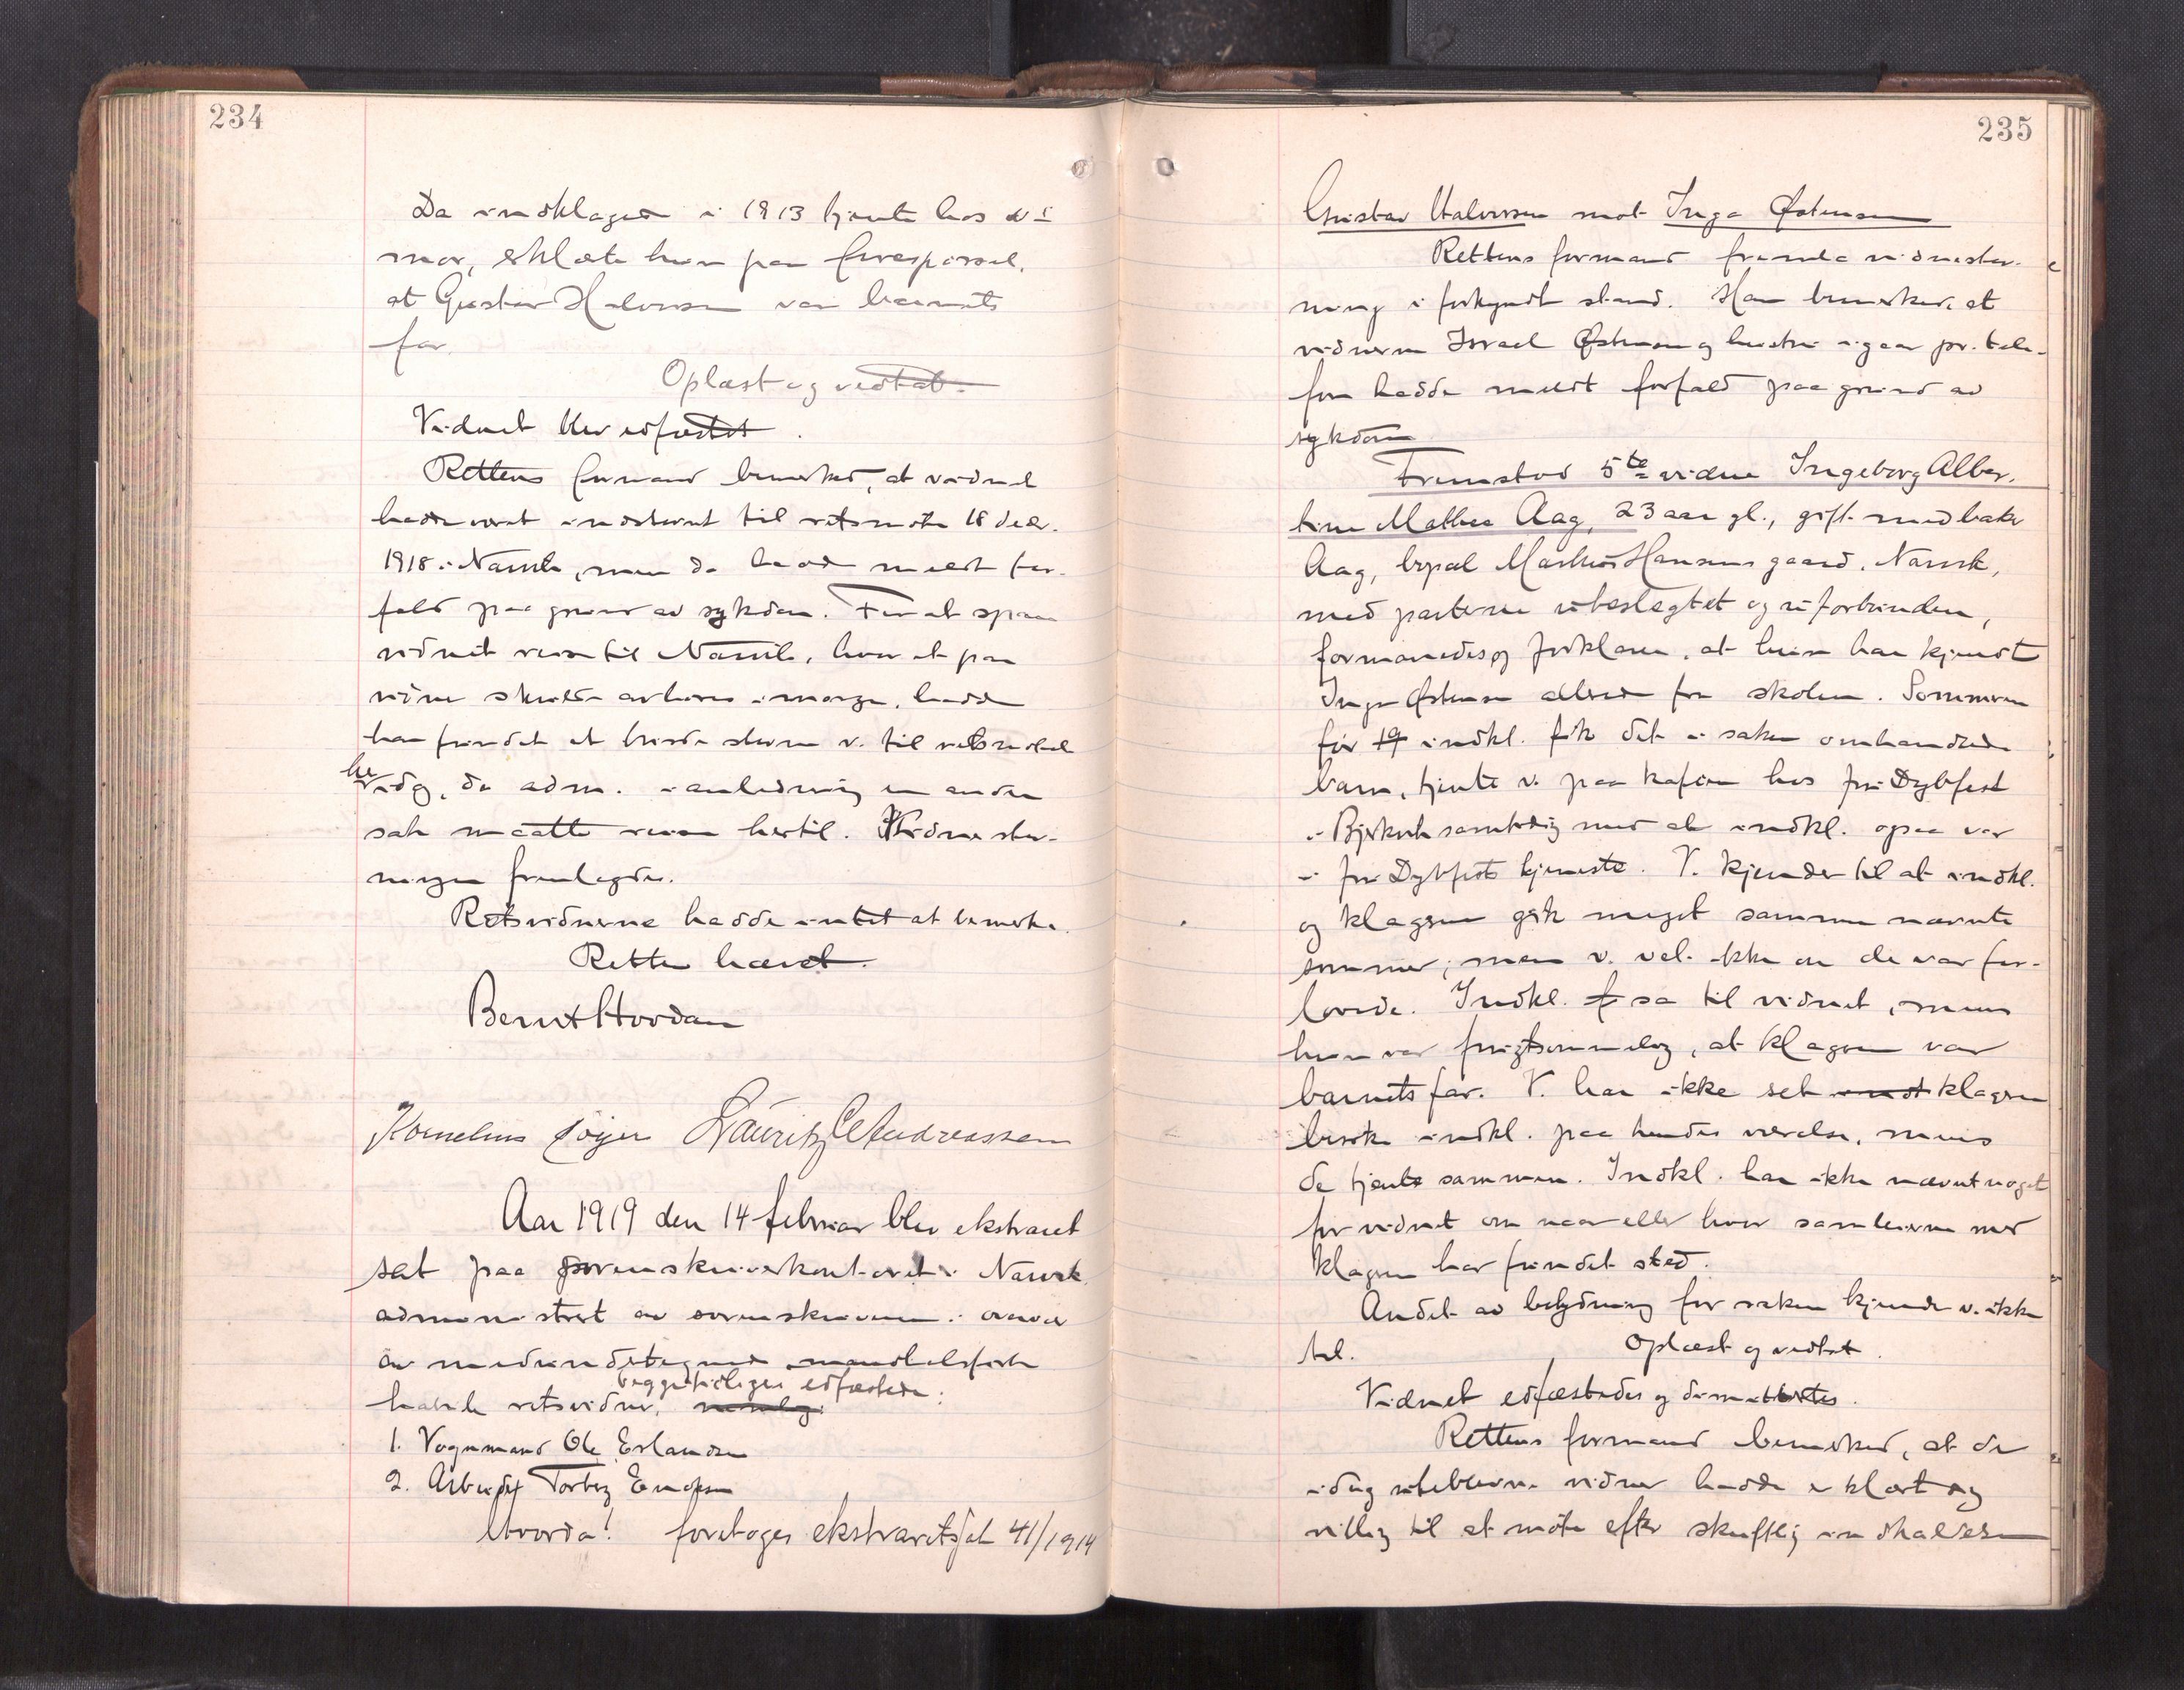 234
Da indklagede i 1913 tjente hos v's
mor, erklærte hun paa forespørsel,
at Gustav Halvorsen var barnets
far.
Oplæst og vedtat.
Vidnet blev edfæstet.
Rettens formand bemerket, at vidnet
hadde været indstevnt til retsmøte 18 decbr.
1918 i Narvik, men da hadde meldt for-
fald paa grund av sykdom. For at spare
vidnet reise til Narvik, hvor et par
vidne skulde avhøres imorgen, hadde
han fundet at burde stevne v. til retsmøtet
her
idag, da adm. i anledning en anden
sak maatte reise hertil. Vidnestev-
ningen fremlagdes.
Retsvidnerne hadde intet at bemerke.
Retten hævet.
Bernt Hovdan
Kornelius Lauritz C Andreassen
Aar 1919 den 14 februar blev ekstraret
sat paa sorenskriverkontoret i Narvik
administrert av sorenskriveren i overvær
av medundertegnede mandtalsførte
begge tidligere edfæstede:
habile retsvidner, nemlig:
1. Vognmand Ole Erlandsen
2. Arbeider Torberg
Hvorda! foretoges ekstraretssak 41/1914
235
Gustav Halvorsen mot Inga Østensen
Rettens formand fremla vidnestev-
ning i forkyndt stand. Han bemerket, at
vidnerne Israel Østensen og hustru igaar pr. tele-
fon hadde meldt forfald paa grund av
sykdom
Fremstod 5te vidne Ingeborg Alber-
tine Mathea Aag, 23 aar gl., gift med baker
Aag, bopæl Hansens gaard, Narvik,
med parterne ubeslegtet og uforbunden,
formanedes og forklarer, at hun har kjendt
Inga Østensen allerede fra skolen. Sommeren
før 19 indkl. fik det i saken omhandlede
barn, tjente v. paa kafeen hos fru Dybfest
i Bjerkvik samtidig med at indkl. ogsaa var
i fru Dybfests tjeneste. V. kjender til at indkl.
og klageren gik meget sammen nævnte
sommer; men v. vet ikke om de var for-
lovede. Indkl. f sa til vidnet, mens
hun var frugtsommelig, at klageren var
barnets far. V. har ikke set indk klageren
besøke indkl. paa hendes værelse, mens
de tjente sammen. Indkl. har ikke nævnt noget
for vidnet om naar eller hvor samleierne med
klageren har fundet sted.
Andet av betydning for saken kjender v. ikke
til. Oplæst og vedtat.
Vidnet edfæstedes og dimittertes.
Rettens formand bemerket, at de
idag uteblevne vidner hadde erklært sig
villig til at møte efter skriftlig indkaldelse